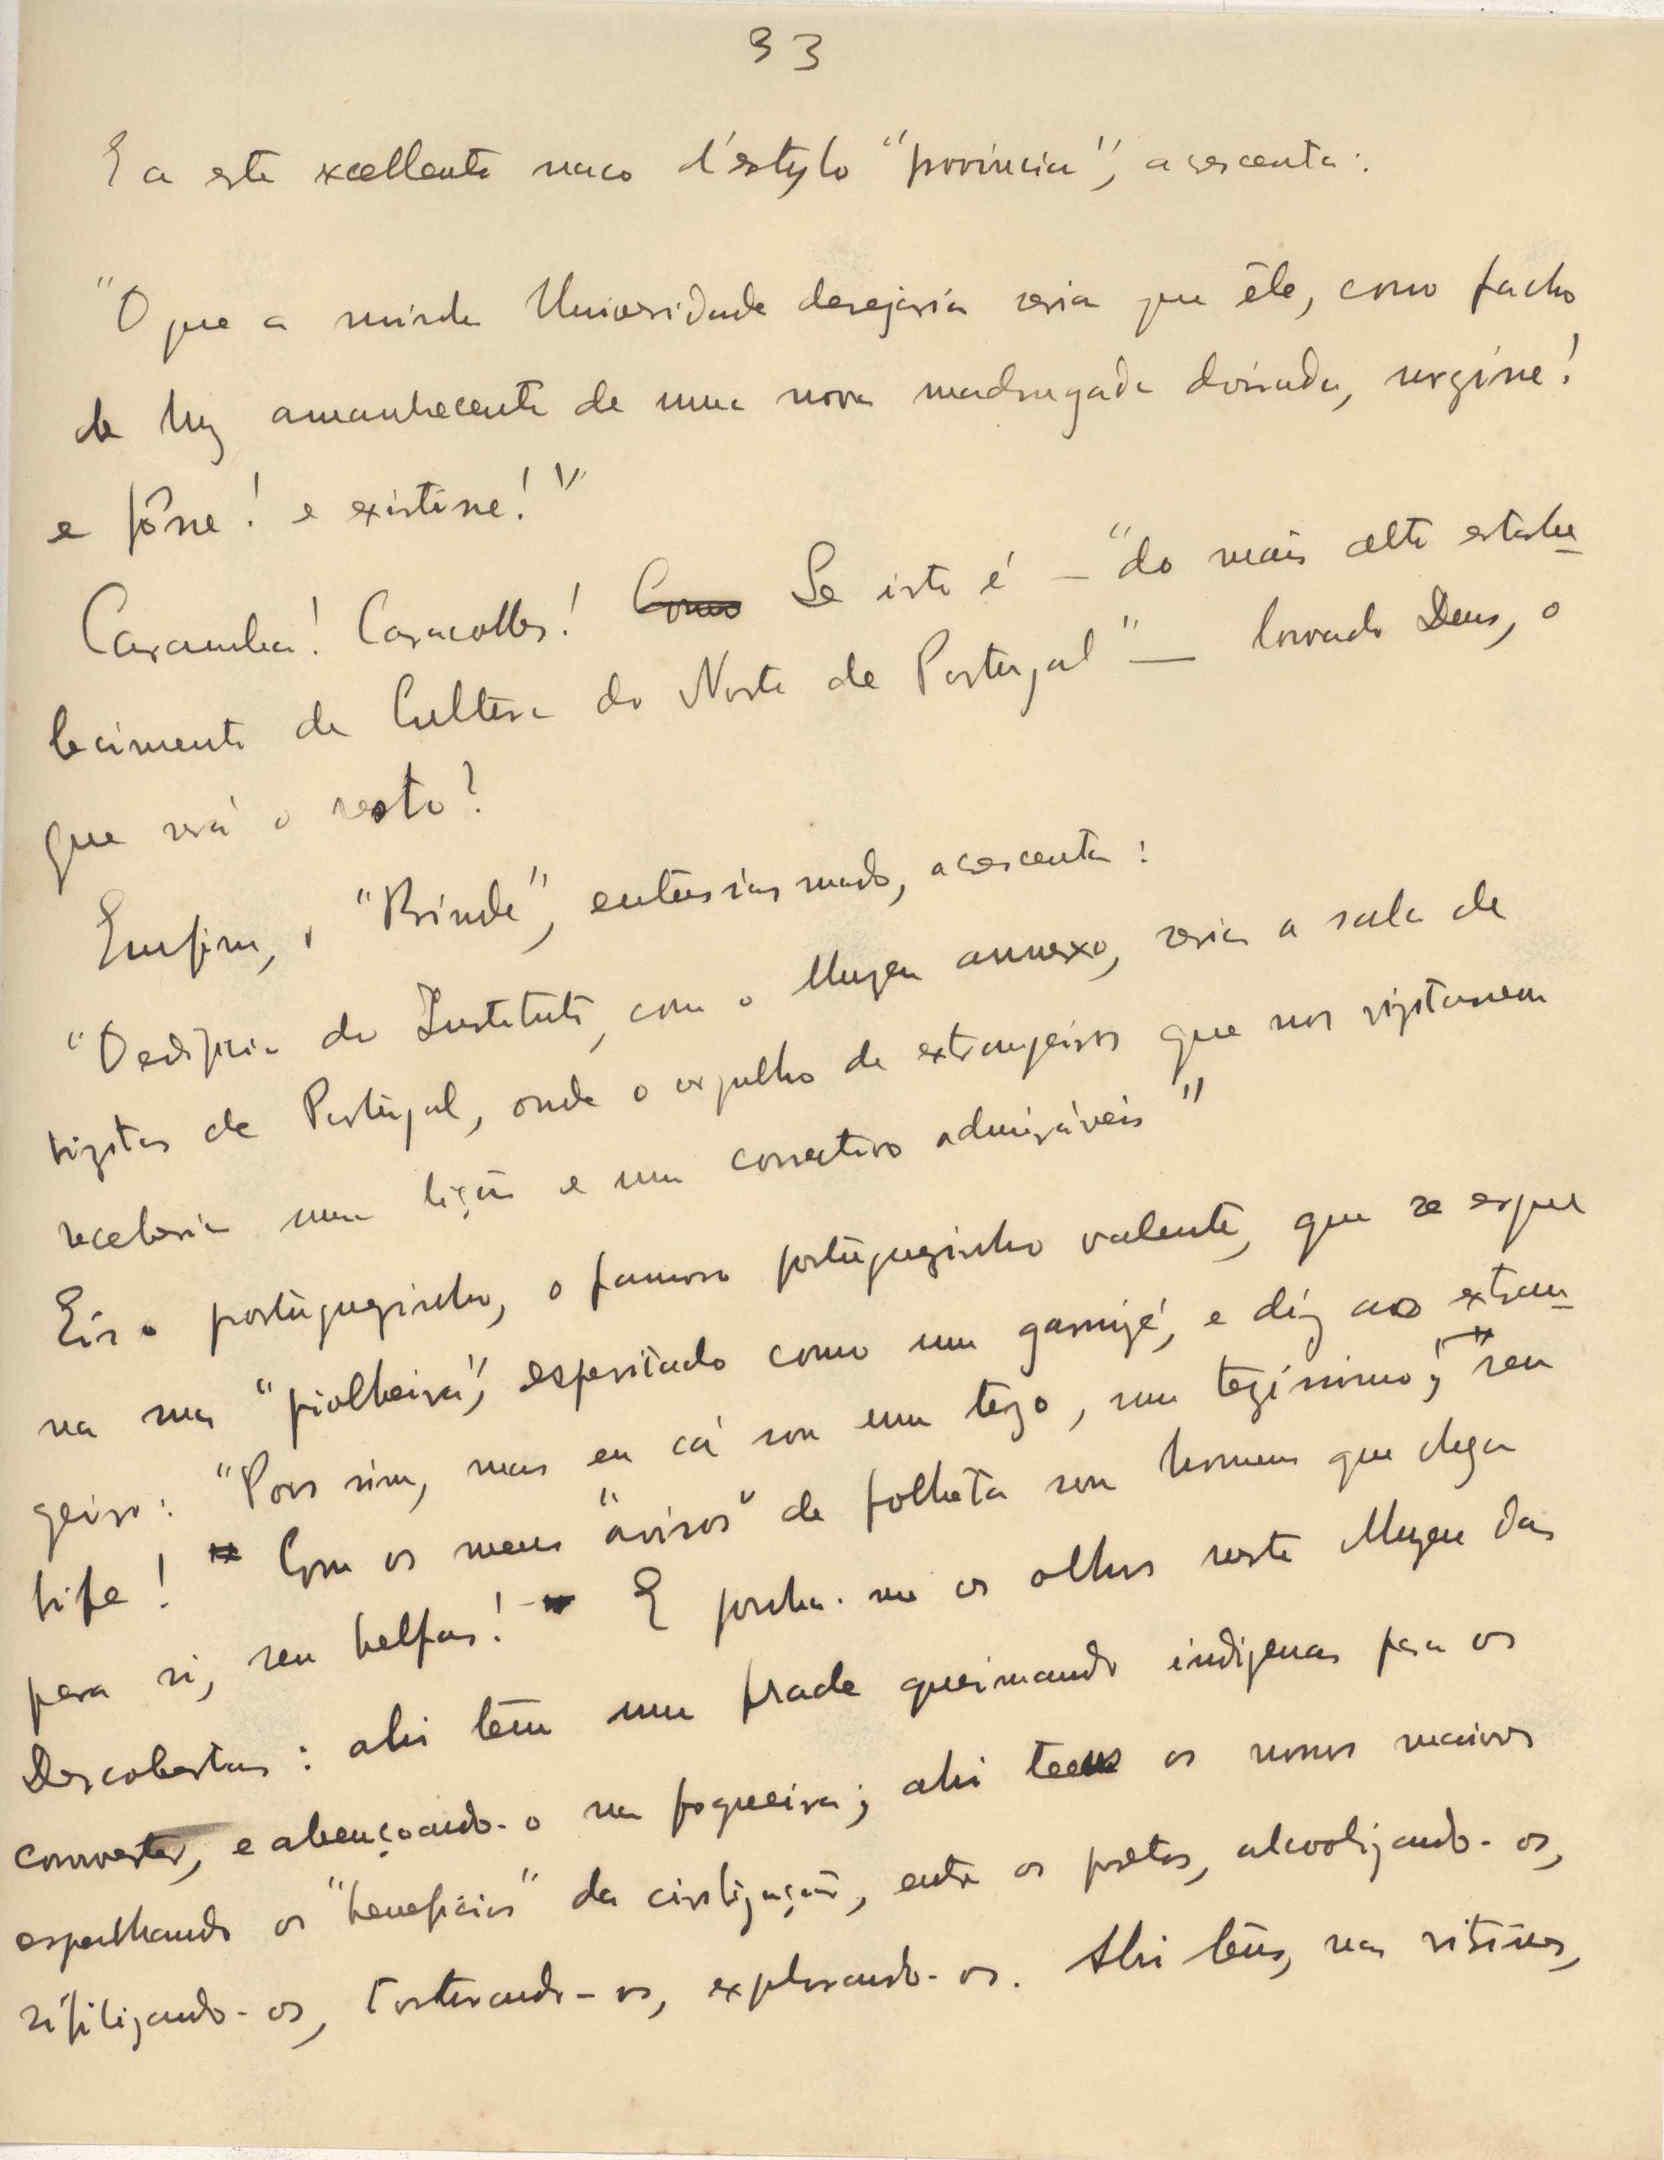 33
E a este excellente naco d'estylo "provincia", acrescenta:
"O que a minha Universidade desejaria seria que êle, como facho
de luz amanhecente de uma nova madrugada doirada, urgisse!
e fôsse! e existisse!"
Caramba! Caracolles! Como Se isto é — "do mais alto estabe-
lecimento de Cultura do Norte de Portugal" — louvado Deus, o
que será o resto?
Emfim, o "Brinde", entusiasmado, acrescenta:
"O edificio do Instituto, com o Muzeu annexo, seria a sala de
vizitas de Portugal, onde o orgulho de extrangeiros que nos vizitassem
receberia uma lição e um correctivo admiráveis"
Eis o portuguezinho, o famoso portuguezinho valente, que se ergue
na sua "piolheira", espevitado como um garnizé, e diz ao extran-
geiro: "Pois sim, mas eu cá sou um tezo, um tezissimo, seu
bife! Com os meus "avisos" de folheta sou homem que chega
para si, seu belfas! E ponha-me os olhos neste Muzeu das
Descobertas: ahi têm um frade queimando indigenas para os
converter, e abençoando-o na fogueira; ahi teem os nossos maiores
espalhando os "beneficios" da civilização, entre os pretos, alcoolizando-os,
sifilizando-os, torturando-os, explorando-os. Ahi têm, nas vitrines,